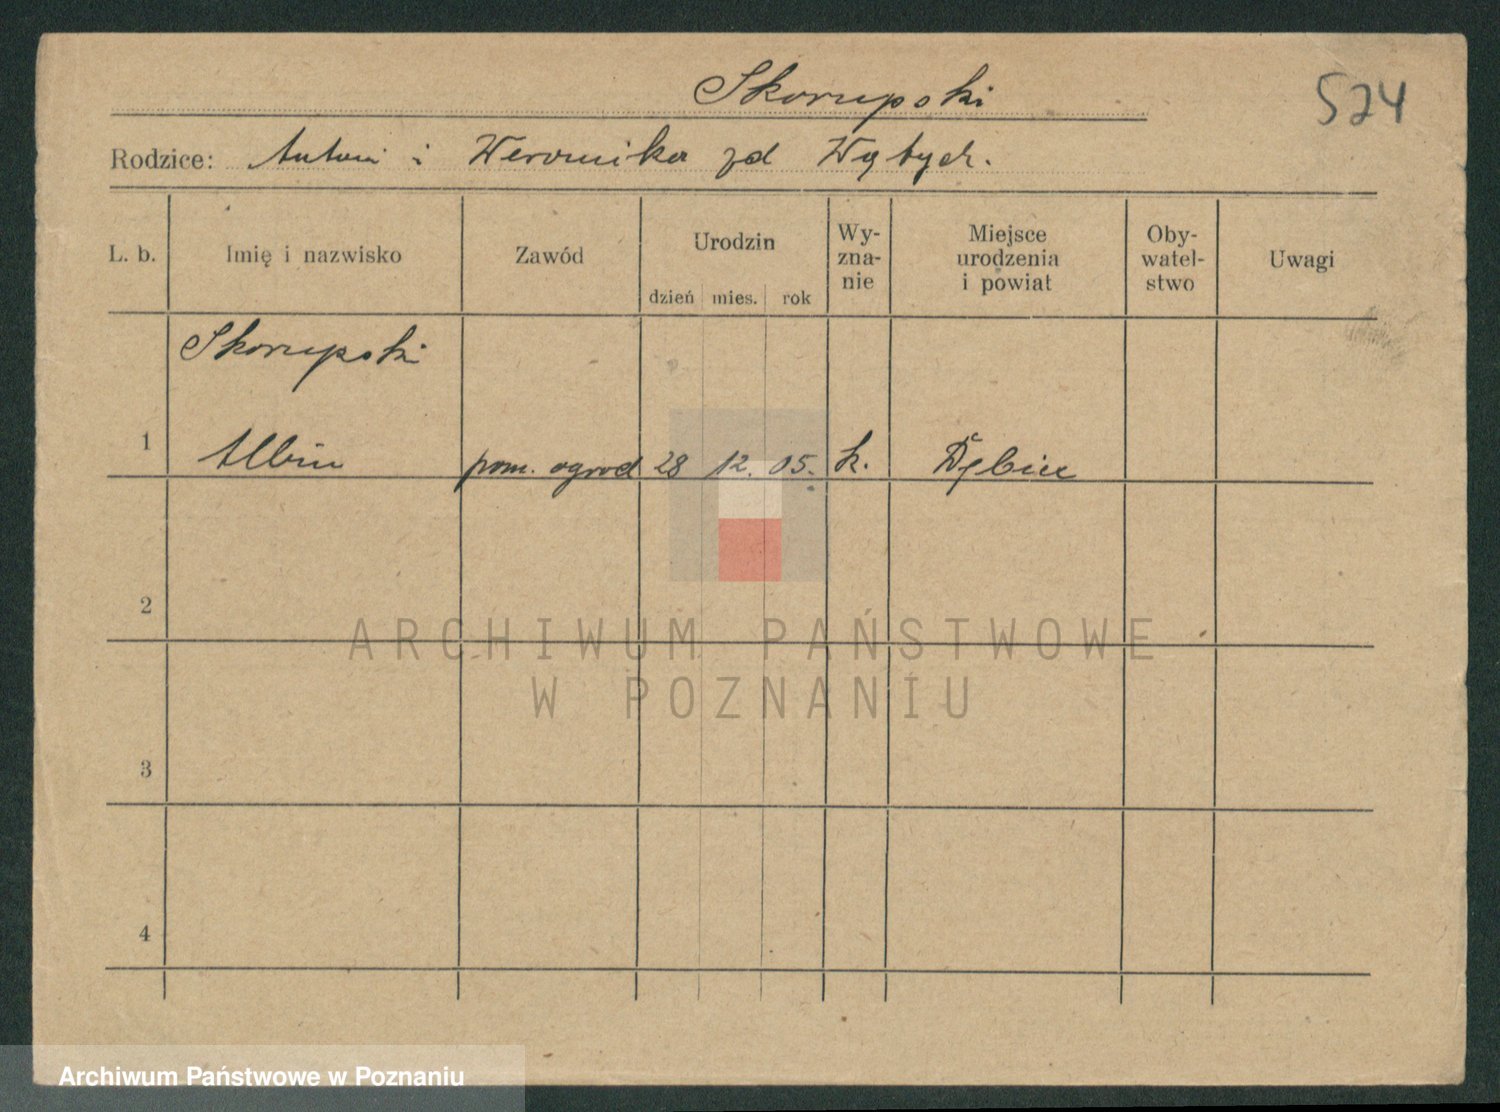 Skorupski
524
Rodzice: Antoni i Weronika zd Wątych.
L. b. Imię i nazwisko Zawód Urodzin dzień mies. rok Wy-zna-nie Miejsce urodzenia i powiat Oby-watel-stwo Uwagi
Skorupski
1 Albin pom. ogrod 28 12. 05. k. Dębiec
2
3
4
ARCHIWUM PAŃSTWOWE
W POZNANIU
Archiwum Państwowe w Poznaniu